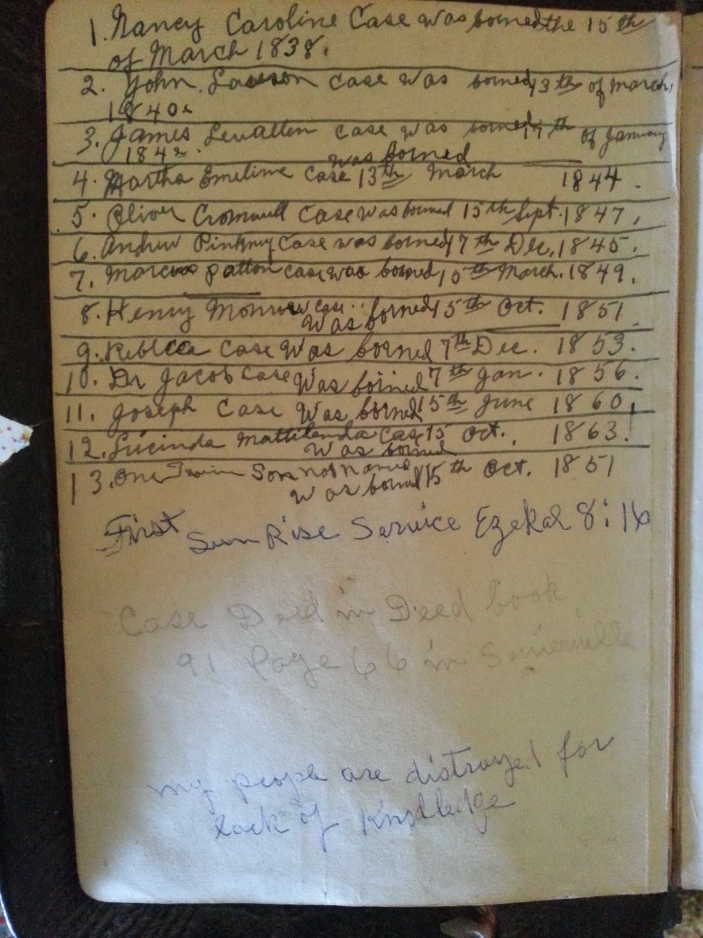 1. Nancy Caroline Case was borned the 15th
of March 1838.
2. John Lawson Case was borned 13th of march,
1840.
3. James Levatten Case was borned 14th of January
1842.
was borned
4. Martha Emeline Case 13th March 1844.
5. Oliver Cromwell Case was borned 15th Sept. 1847,
6. Andrew Pinkney Case was borned 7th Dec, 1845.
7. Marcus patton case was borned 10th March. 1849.
8. Henry Monroe case
was borned 15th Oct. 1851
9. Rebecca Case was borned 7th Dec. 1853.
10. Dr Jacob Case was borned 7th Jan. 1856.
11. Joseph Case was borned 5th June 1860,
12. Lucinda Mattilenda Case 15 Oct., 1863.
was borned
13. One Twin Son not Named
was borned 15th Oct. 1851
First Sun Rise Service Ezekal 8:16
Case Deed in Deed book
91 Page 66 in
my people are distroyed for
lack of Knolledge